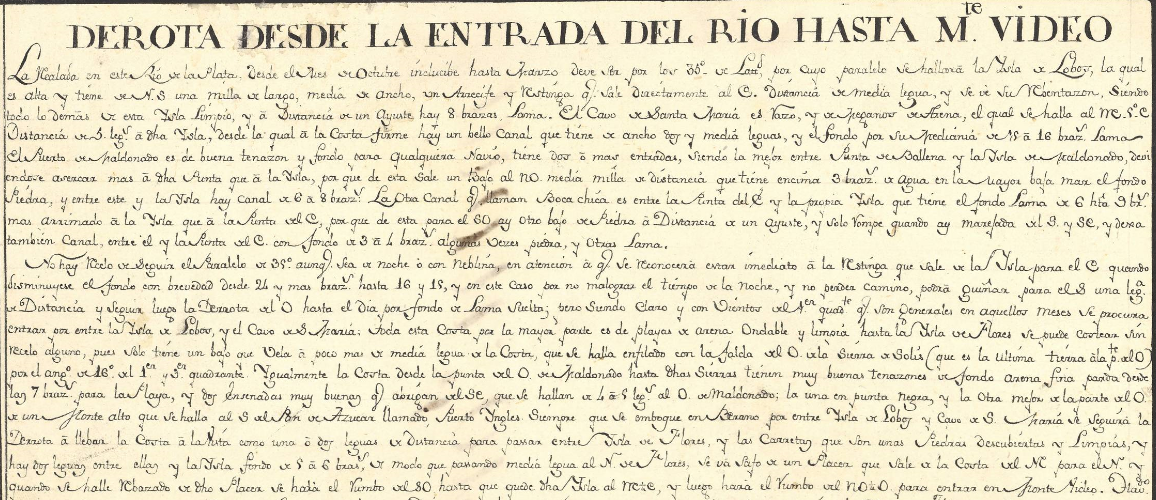 DEROTA DESDE LA ENTRADA DEL RIO HASTA M.te VIDEO
La Recalada en este Rio de la Plata, desde el Mes de Octubre inclucibe hasta Marzo deve ser por los 35º de Lattd por cuyo paralelo se hallará la Ysla de Lobos, la qual
es alta y tiene de N.S una milla de largo, media de Ancho, un Arrecife y Restinga q.e sale directamente al E. Distancia de media legua, y se ve su Rebentazon, Siendo
todo lo demás de esta Ysla Limpio, y á Distancia de un Ajuste hay 8 brazas, Lama. El Cavo de Santa Maria es Vazo, y de Meganos de Arena, el qual se halla al NE. 5º E
Distancia de 3 leg.s á dha Ysla, desde la qual á la Costa firme hay un bello Canal que tiene de ancho dos y media leguas, y el fondo por su Mediania de 15 á 16 braz.s Lama
El Puerto de Maldonado es de buena tenazon y fondo, para qualquera Navio, tiene dos ó mas entradas, siendo la mejor entre Punta de Ballena y la Ysla de Maldonado, devi
endose asercar mas á dha Punta que á la Ysla, por que de esta sale un bajo al NO. media milla de distáncia que tiene encima 3 braz.s de Agua en la mayor baja mar el fondo
Piedra, y entre este y la Ysla hay Canal de 6 á 8 braz.s La Otra Canal q.e llaman Boca chica es entre la Punta del E. y la propia Ysla que tiene el fondo Lama de 6 hta 9 br.s
mas arrimado á la Ysla que á la Punta del E, por que de esta para el SO ay otro bajo de Piedra á Distancia de un ajuste, y solo rompe quando ay marejada del S. y SE, y dexa
también Canal, entre el y la Punta del E. con fondo de 3 á 4 braz.s algunas vezes piedra, y Otras Lama.
No hay recelo de seguir el Paralelo de 35º aunq.e sea de noche ó con Neblina, en atención á q.e se reconocerá estar imediato á la Restinga que sale de la Ysla para el E quando
disminuyese el fondo con brevedad desde 24 y mas braz.s hasta 16 y 15, y en este Caso por no malograr el tiempo de la Noche, y no perder camino, podrá guiñar para el S una leg.a
de Distancia y seguir luego la Derrota al O hasta el Dia, por fondo de Lama Suelta; pero Siendo Claro y con Vientos del 1.er quad.te q.e son generales en aquellos meses Se procura
entrar por entre la Ysla de Lobos, y el Cavo de S. Maria; toda esta Costa por la mayor parte es de playas de arena Ondable y limpia hasta la Ysla de Flores se puede Costear sin
recelo alguno, pues solo tiene un bajo que Vela á poco mas de media legua de la Costa, que se halla enfilado con la falda del O. de la Sierra de Solis (que es la ultima tierra á la p.te del O)
por el ang.o de 16º del 1.er y 3.er quadrante. Ygualmente la Costa desde la punta del O. de Maldonado hasta dhas Sierras tienen muy buenas tenazones de fondo arena fina parda desde
las 7 braz.s para la Playa, y dos Ensenadas muy buenas q.e abrigan del SE, que se hallan de 4 á 5 leg.s al O. de Maldonado; la una en punta negra, y la Otra mejor de la parte del O.
de un Monte alto que se halla al S del Pan de Azucar llamado, Puerto Yngles. Siempre que se emboque en Berano por entre Ysla de Lobos y Cavo de S. Maria se Seguirá la
Derrota á llebar la Costa á la Vista como una ó dos leguas de Distancia para passar entre Ysla de Flores, y las Carretas que son unas Piedras Descubiertas y Limpias, y
hay dos leguas entre ellas y la Ysla fondo de 5 á 6 bras.s de modo que pasando media legua al N. de Flores, se vá Safo de un Placer que sale de la Costa del NE para el N. y
quando se halle Rebazado de dho Placer se hará el Rumbo al SO hasta que quede dha Ysla al NE¼E, y luego hará el Rumbo del NO¼O. para entrar en Monte Video.